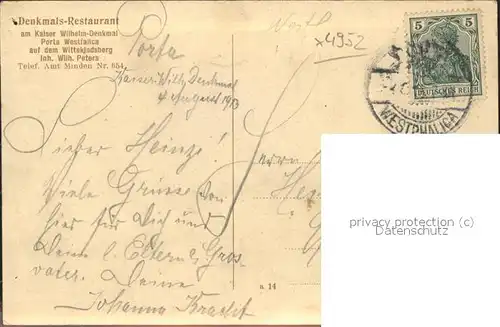 Denkmals-Restaurant
am Kaiser Wilhelm-Denkmal
Porta Westfalica
auf dem Wittekindsberg
Joh. Wilh. Peters
Telef. Amt Minden Nr. 654
Westf.
x4952
Porta
Kaiser Wilh Denkmal
4 August 1913
5 5
DEUTSCHES REICH
WESTPHALICA
Lieber Heinz!
Viele Grüsse von
hier für Dich und
Deine l. Eltern & Gros
vater. Deine
Johanna
Herrn
a. 14
privacy protection (c)
Datenschutz